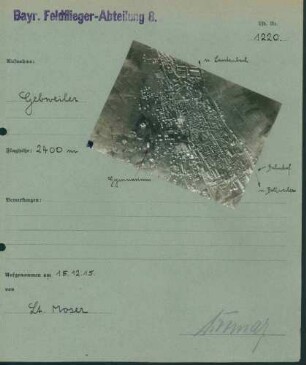 Bayr. Feldflieger-Abteilung 8.
Lfd. Nr.
1220.
Aufnahme:
n. Lautenbach
Gebweiler
Flughöhe: 2400 m
Gymnasium
Bahnhof
Bemerkungen:
Aufgenommen am 18.12.15.
von
Lt. Moser